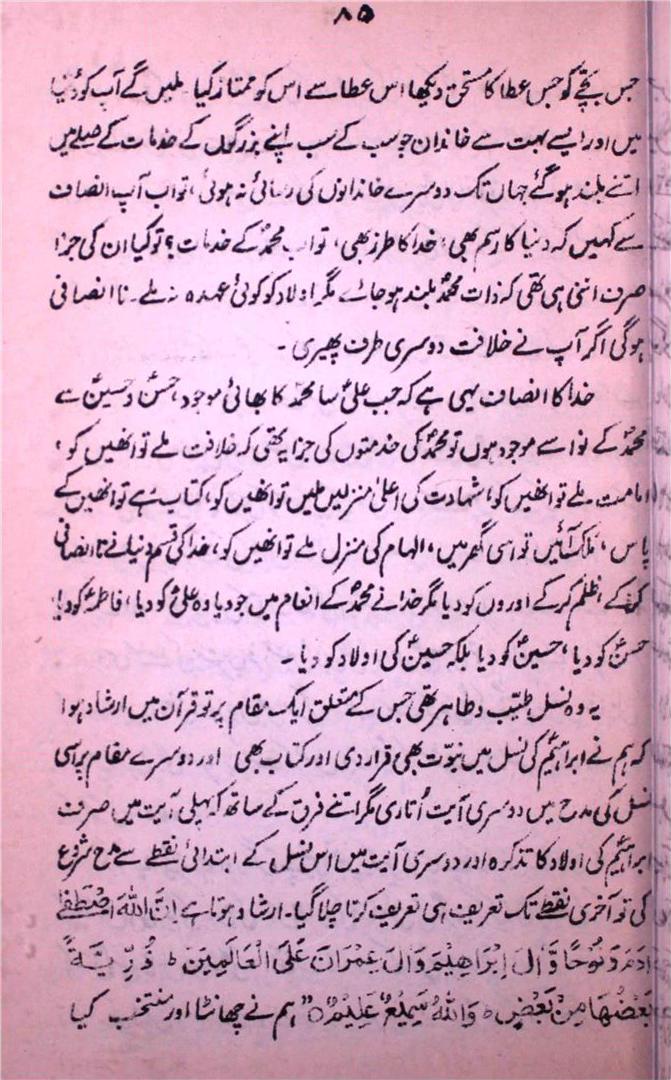 ۸۵
جس بچے کو جس عطا کا مستحق دیکھا اس عطا سے اس کو ممتاز کیا۔ ملیں گے آپ کو دُنیا
میں اور ایسے بہت سے خاندان جو سب کے سب اپنے بزرگوں کے خدمات کے صلے میں
اتنے بلند ہوگئے جہاں تک دوسرے خاندانوں کی رسائی نہ ہوئی، تو اب آپ انصاف
سے کہیں کہ دنیا کا رسم بھی، خدا کا طرز بھی، تو اب محمدؐ کے خدمات؟ تو کیا ان کی جزا
صرف اتنی ہی تھی کہ ذات محمدؐ بلند ہو جائے مگر اولاد کو کوئی عہدہ نہ ملے۔ نا انصافی
ہوگی اگر آپ نے خلافت دوسری طرف پھیری۔
خدا کا انصاف یہی ہے کہ جب علیؑ سا محمدؐ کا بھائی موجود، حسنؑ و حسینؑ سے
محمدؐ کے نواسے موجود ہوں تو محمدؐ کی خدمتوں کی جزا یہ تھی کہ خلافت ملے تو انھیں کو،
امامت ملے تو انھیں کو، شہادت کی اعلیٰ منزلیں ملیں تو انھیں کو، کتاب رہے تو انھیں کے
پاس، ملک آئیں تو اسی گھر میں، الہام کی منزل ملے تو انھیں کو، خدا کی قسم دنیا نے نا انصافی
کرکے، ظلم کرکے اوروں کو دیا مگر خدا نے محمدؐ کے انعام میں جو دیا وہ علیؑ کو دیا، فاطمہؑ کو دیا،
حسنؑ کو دیا، حسینؑ کو دیا بلکہ حسینؑ کی اولاد کو دیا۔
یہ وہ نسل طیّب و طاہر تھی جس کے متعلق ایک مقام پر تو قرآن میں ارشاد ہوا
کہ ہم نے ابراہیمؑ کی نسل میں نبوّت بھی قرار دی اور کتاب بھی اور دوسرے مقام پر اسی
نسل کی مدح میں دوسری آیت اُتاری مگر اتنے فرق کے ساتھ کہ پہلی آیت میں صرف
ابراہیمؑ کی اولاد کا تذکرہ اور دوسری آیت میں اس نسل کے ابتدائی نقطے سے مدح شروع
کی تو آخری نقطے تک تعریف ہی تعریف کرتا چلا گیا۔ ارشاد ہوتا ہے اِنَّ اللہَ اصْطَفٰے
اٰدَمَ وَنُوْحًا وَّاٰلَ اِبْرَاھِیْمَ وَاٰلَ عِمْرَانَ عَلَی الْعَالَمِیْنَ ط ذُرِّیَّۃً
بَعْضُھَا مِنْ بَعْضٍ ط وَاللہُ سَمِیْعٌ عَلِیْمٌ ○" ہم نے چھانٹا اور منتخب کیا